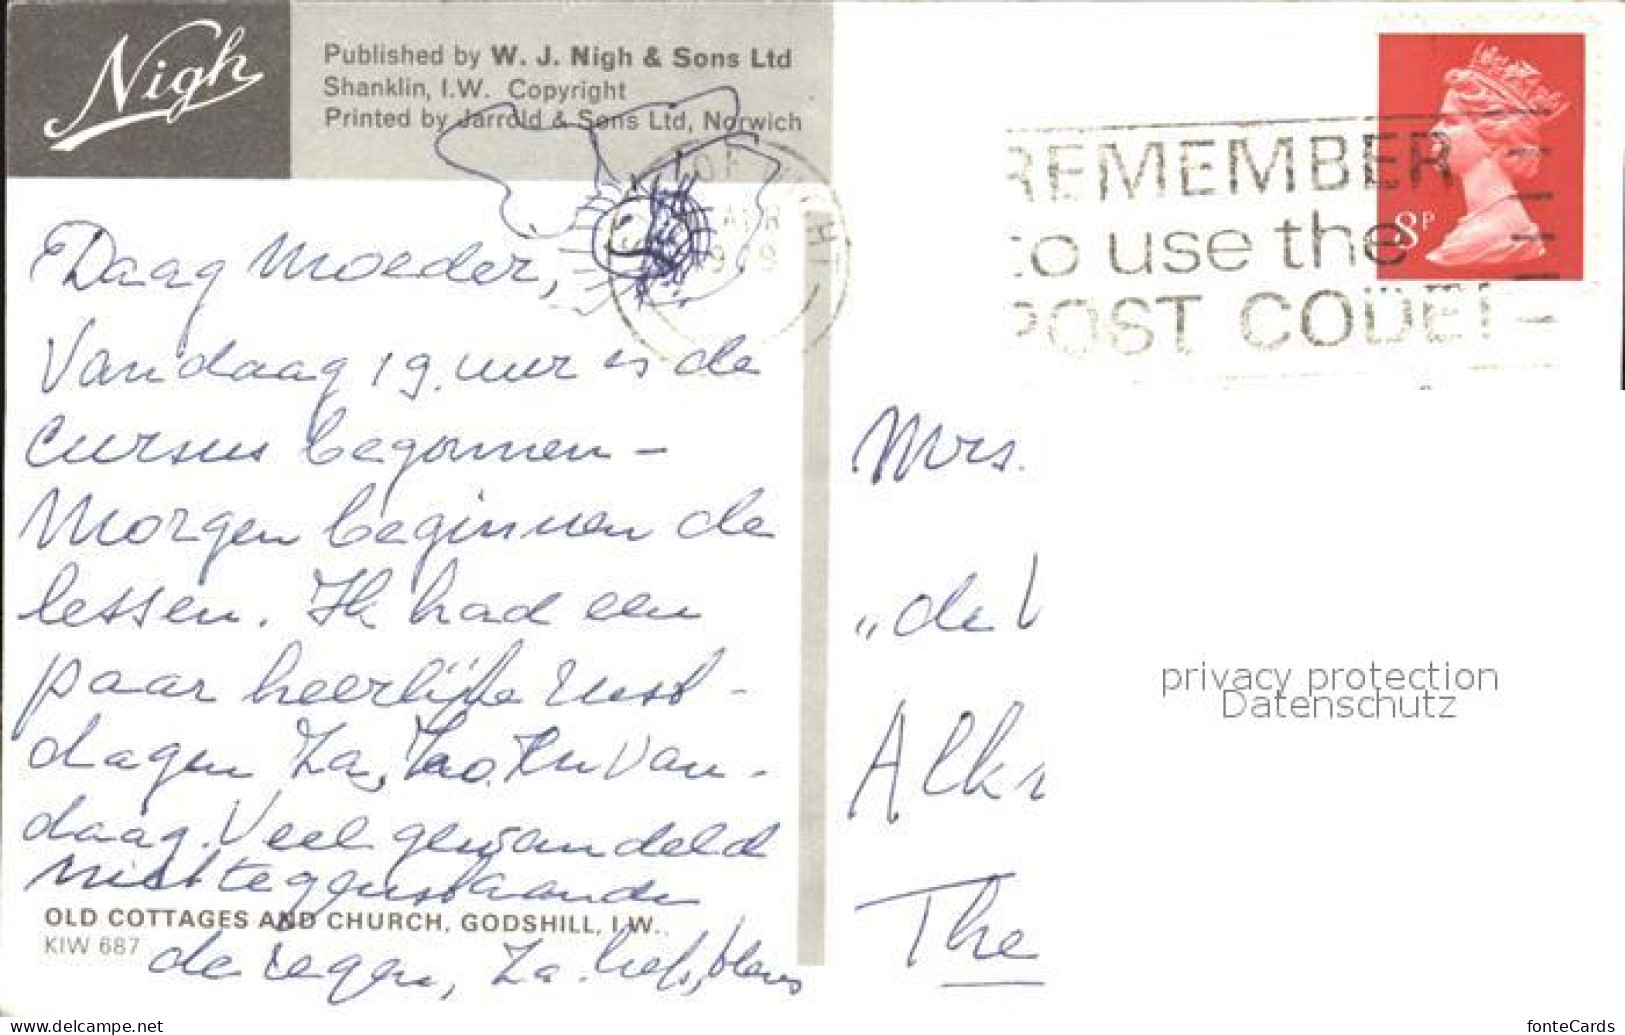 Nigh
Published by W. J. Nigh & Sons Ltd
Shanklin, I.W. Copyright
Printed by Jarrold & Sons Ltd, Norwich
REMEMBER
to use the
POST CODE!
8P
APR
Daag Moeder,
Vandaag 19. uur is de
Cursus begonnen -
Morgen beginnen de
lessen. Ik had een
paar heerlijke rust-
dagen Za, Zo. En van-
daag. Veel gewandeld
niettegenstaande
de regen, Za. liefs,
OLD COTTAGES AND CHURCH, GODSHILL, I.W.
KIW 687
Mrs.
„de
Alk
The
privacy protection
Datenschutz
www.delcampe.net
fonteCards